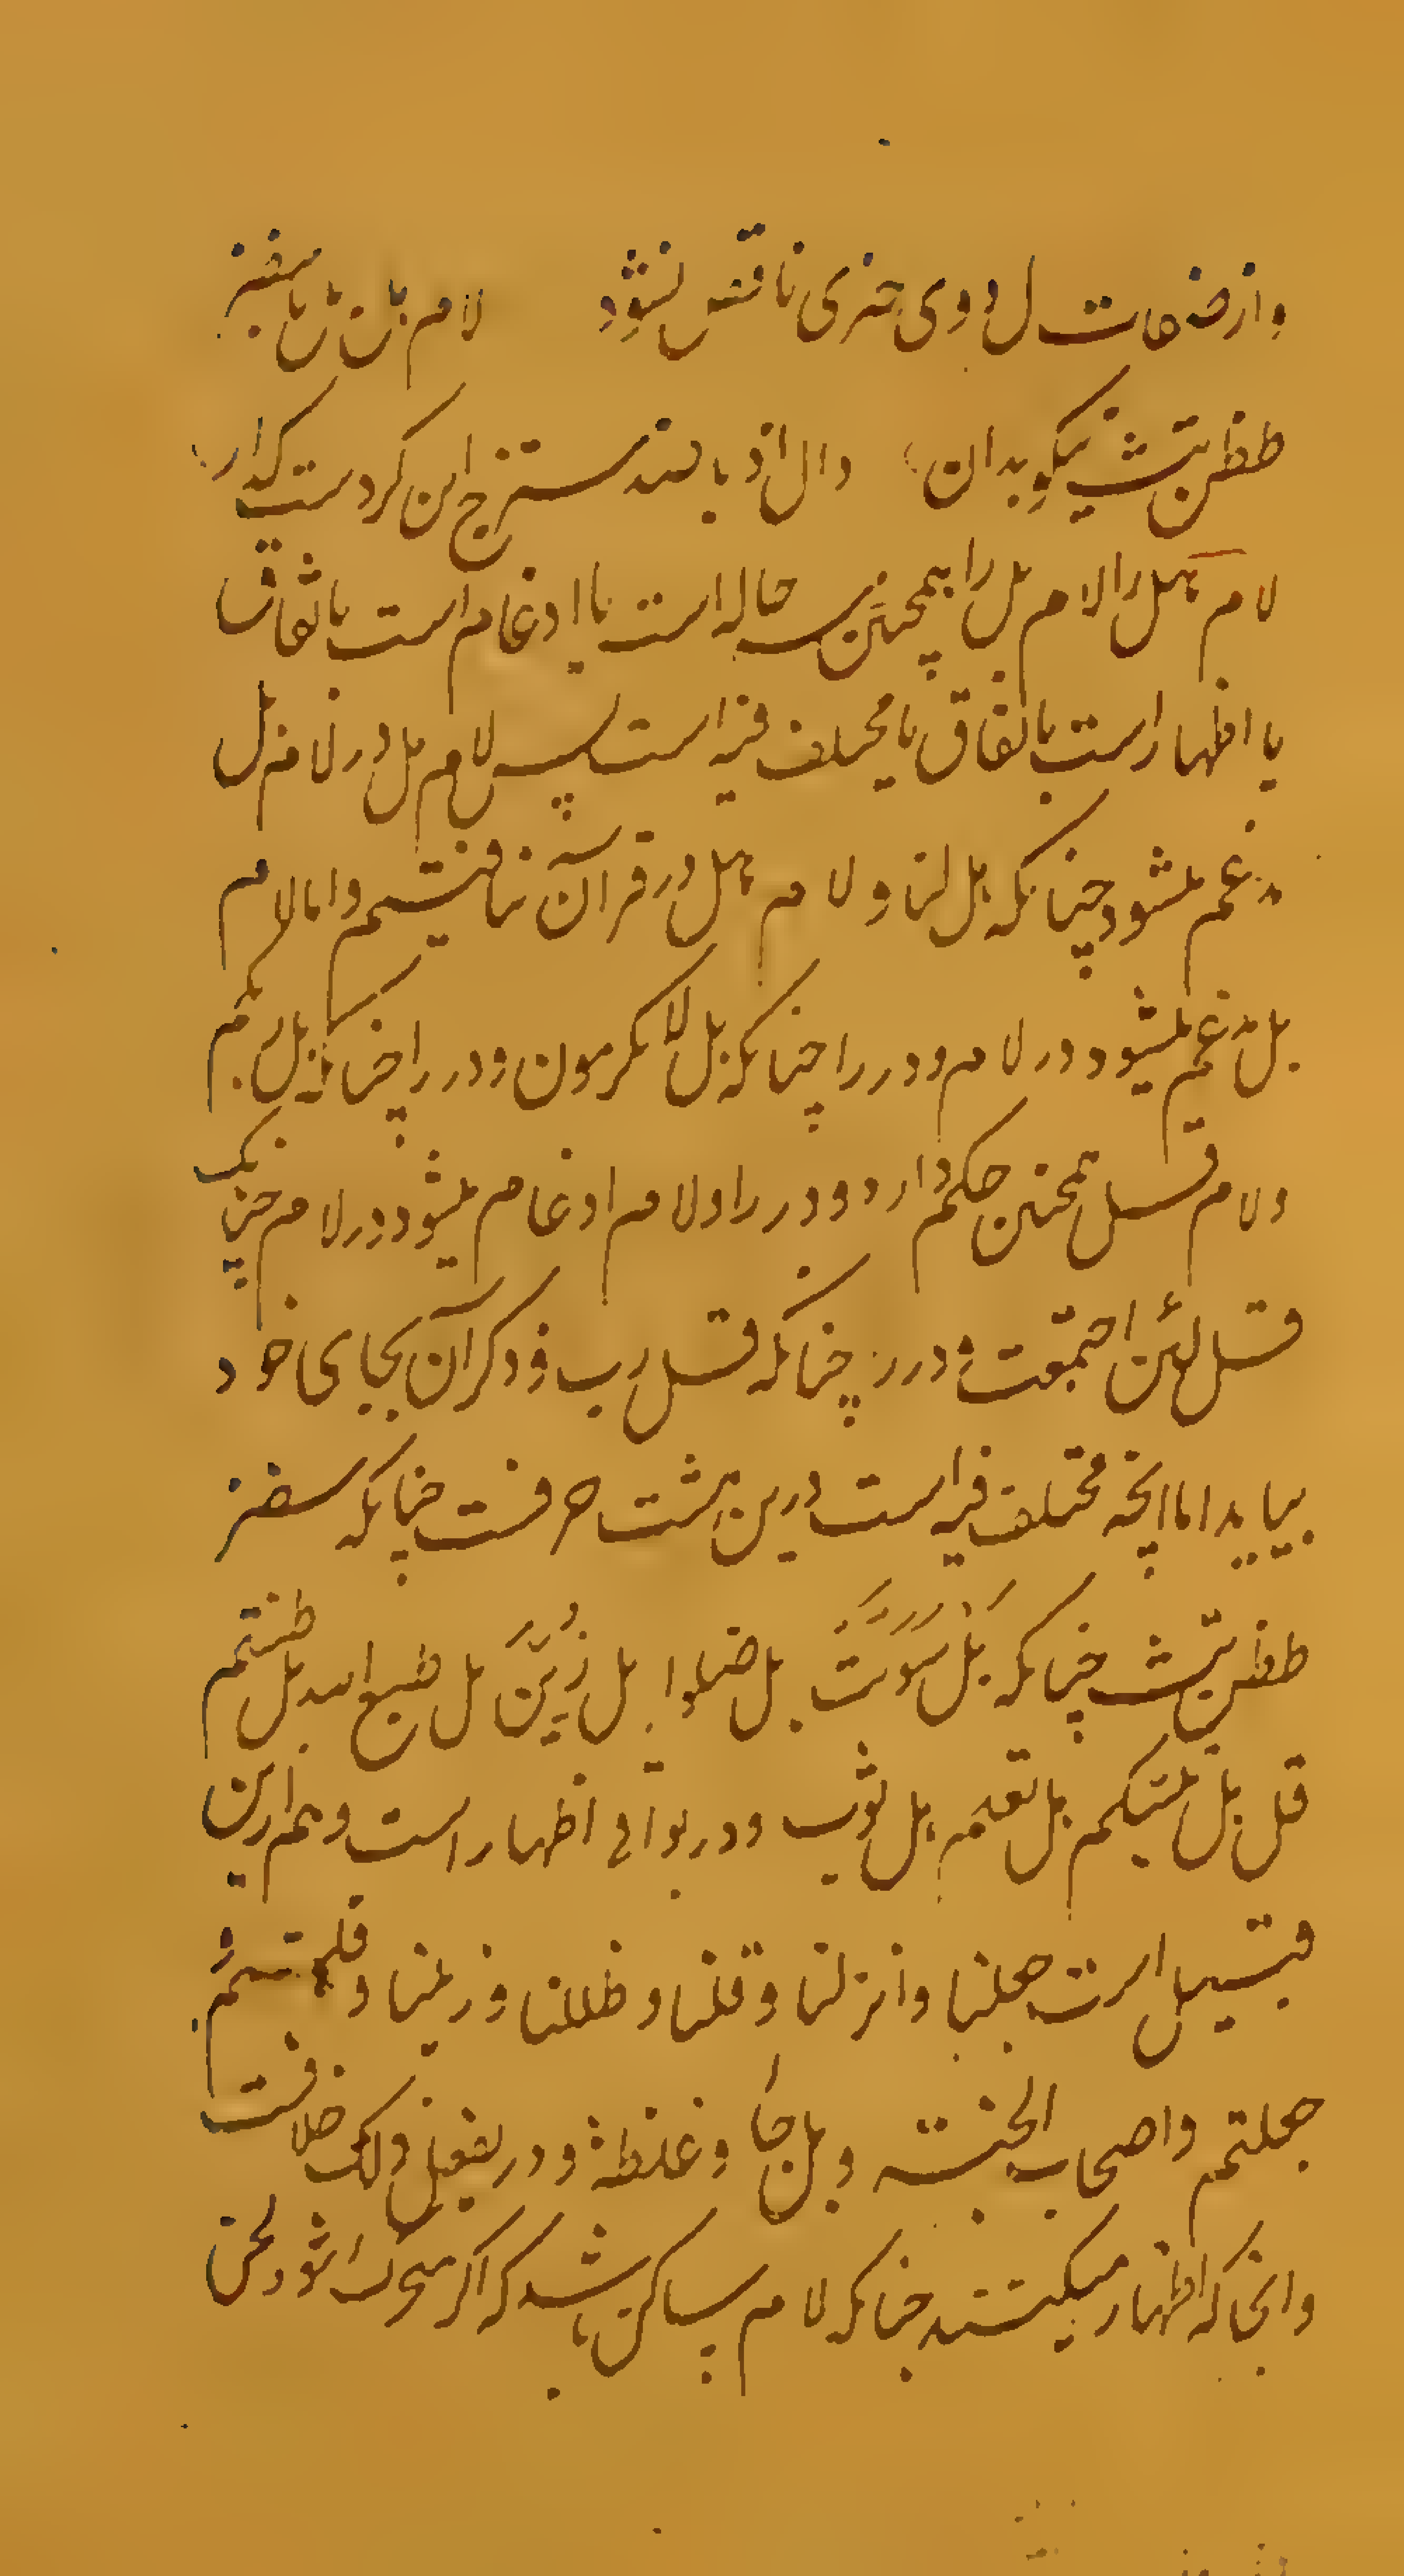 واز صفات ل و وی چیزی ناقص نشود لام بل هل با سضز
طظن بتث نیکو بدان دال اذ با
لام هل را لام بل را همچنین سه حاله است یا ادغام است باتفاق
یا اظهار است باتفاق یا مختلف فیه است پس لام هل در لام هل
مدغم میشود چنانکه هل لنا و لام هل در قرآن نیافتیم واما لام
بل مدغم میشود در لام ودر را چنانکه بل لا تکرمون ودر را چنانکه بل ربکم
ولام قل همچنین حکم دارد ودر را ولام ادغام میشود در لام چنانک
قل لئن اجتمعت ودر ر چنانکه قل رب وذکر آن بجای خود
بیاید اما آنچه مختلف فیه است درین هشت حرفست چنانکه سضز
طظن بتث چنانکه بل سولت بل ضلوا بل زین بل طبع الله بل ظننتم
قل هل ننبئکم هل تعلم هل ثوب ودر بواقی اظهار است وهم ازین
قبیل است جعلنا وانزلنا وقلنا وظللنا وزیلنا وقلتم و
جعلتم واصحاب الجنة وبل جاء وغلظة ودر یفعل ذلک خلافست
وآنجا که اظهار میکنند چنانکه لام ساکن باشد که اگر متحرک شود لحن